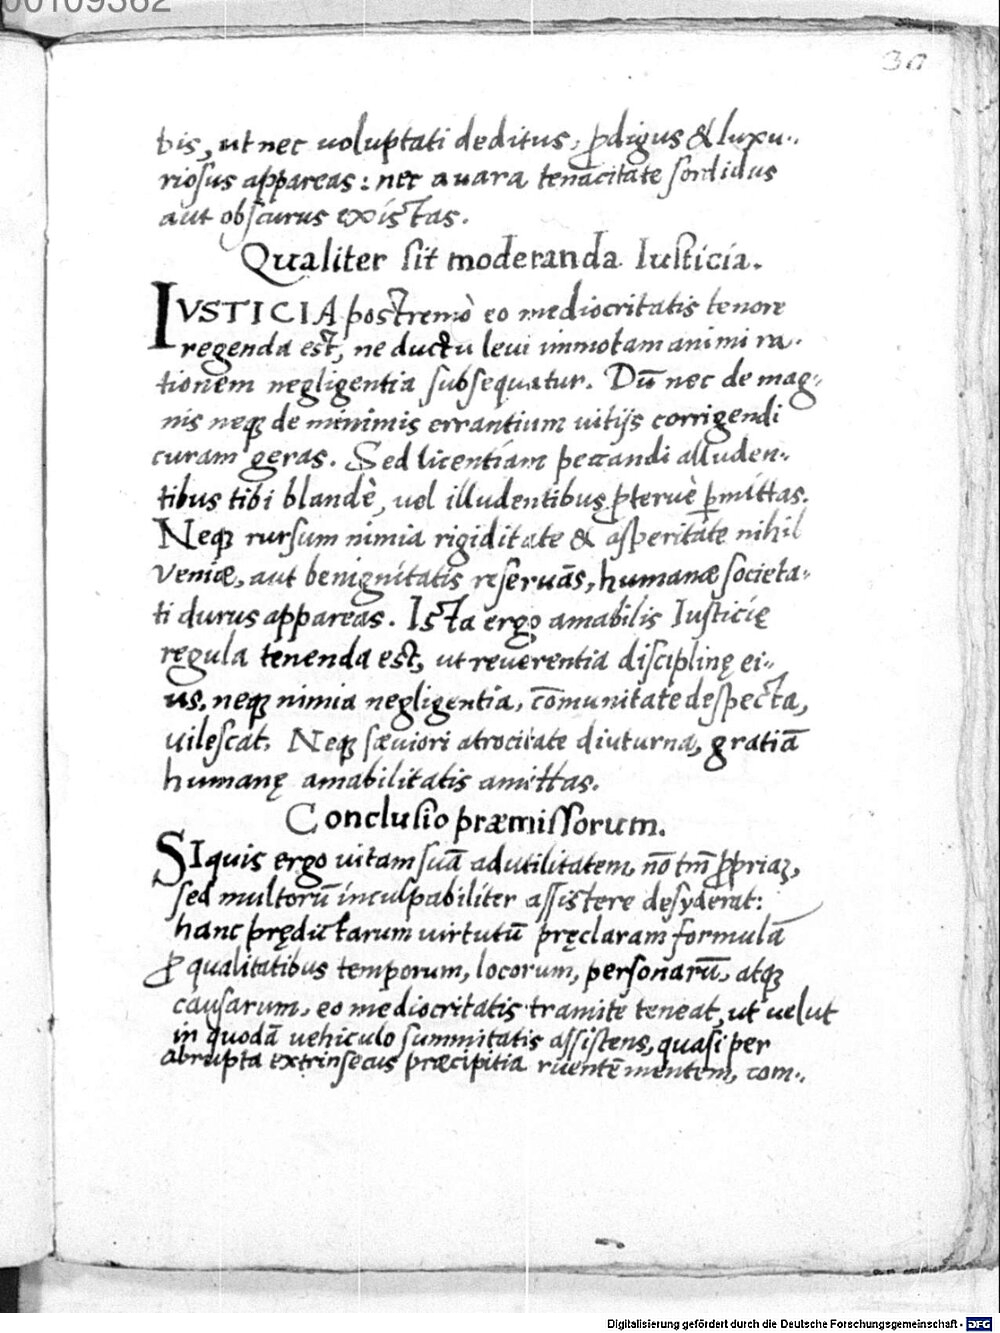 00109362
30
bis, ut nec uoluptati deditus, ꝓdigus & luxu-
riosus appareas: nec auara tenacitate sordidus
aut obscurus existas.
Qualiter sit moderanda Iusticia.
IVSTICIA postremò eo mediocritatis tenore
regenda est, ne ductu leui immotam animi ra-
tionem negligentia subsequatur. Dū nec de mag-
nis neqꝫ de minimis errantium uitijs corrigendi
curam geras. Sed licentiam peccandi alluden-
tibus tibi blandè, uel illudentibus ꝓteruè ꝑmittas.
Neqꝫ rursum nimia rigiditate & asperitate nihil
veniæ, aut benignitatis reseruās, humanæ societa-
ti durus appareas. Ista ergo amabilis Iusticię
regula tenenda est, ut reuerentia disciplinę ei-
us, neqꝫ nimia negligentia, cōmunitate despecta,
uilescat. Neqꝫ sæuiori atrocitate diuturna, gratiā
humanę amabilitatis amittas.
Conclusio præmissorum.
SIquis ergo uitam suā ad utilitatem, nō tm̄ ꝓpriaꝫ,
sed multorū inculpabiliter assistere desyderat:
hanc prędictarum uirtutū pręclaram formulā
ꝓ qualitatibus temporum, locorum, personarū, atqꝫ
causarum, eo mediocritatis tramite teneat, ut uelut
in quodā uehiculo summitatis assistens, quasi per
abrupta extrinsecus præcipitia ruentē mentem, com-
Digitalisierung gefördert durch die Deutsche Forschungsgemeinschaft - DFG